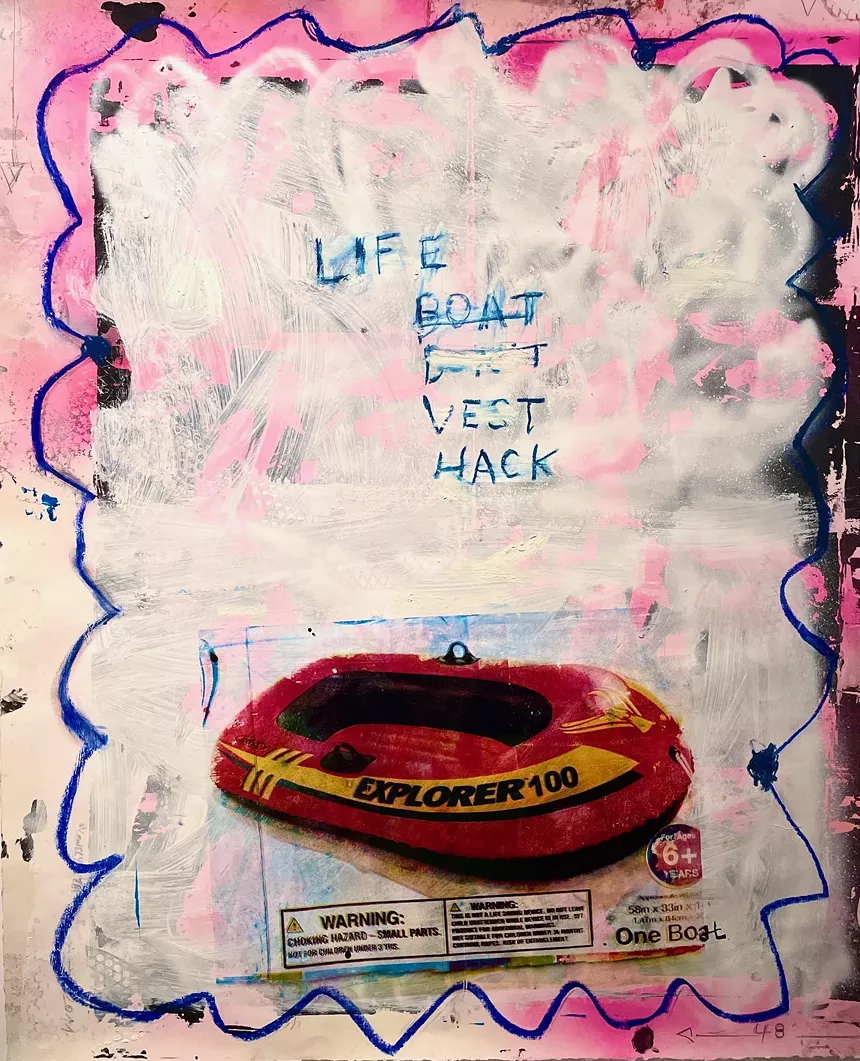 LIFE
BOAT
VEST
HACK
EXPLORER 100
For Ages
6+
YEARS
WARNING:
CHOKING HAZARD - SMALL PARTS.
NOT FOR CHILDREN UNDER 3 YRS.
WARNING:
THIS IS NOT A LIFE SAVING DEVICE. DO NOT LEAVE
CHILD UNATTENDED WHILE DEVICE IS IN USE.
58in x 33in x
One Boat
48